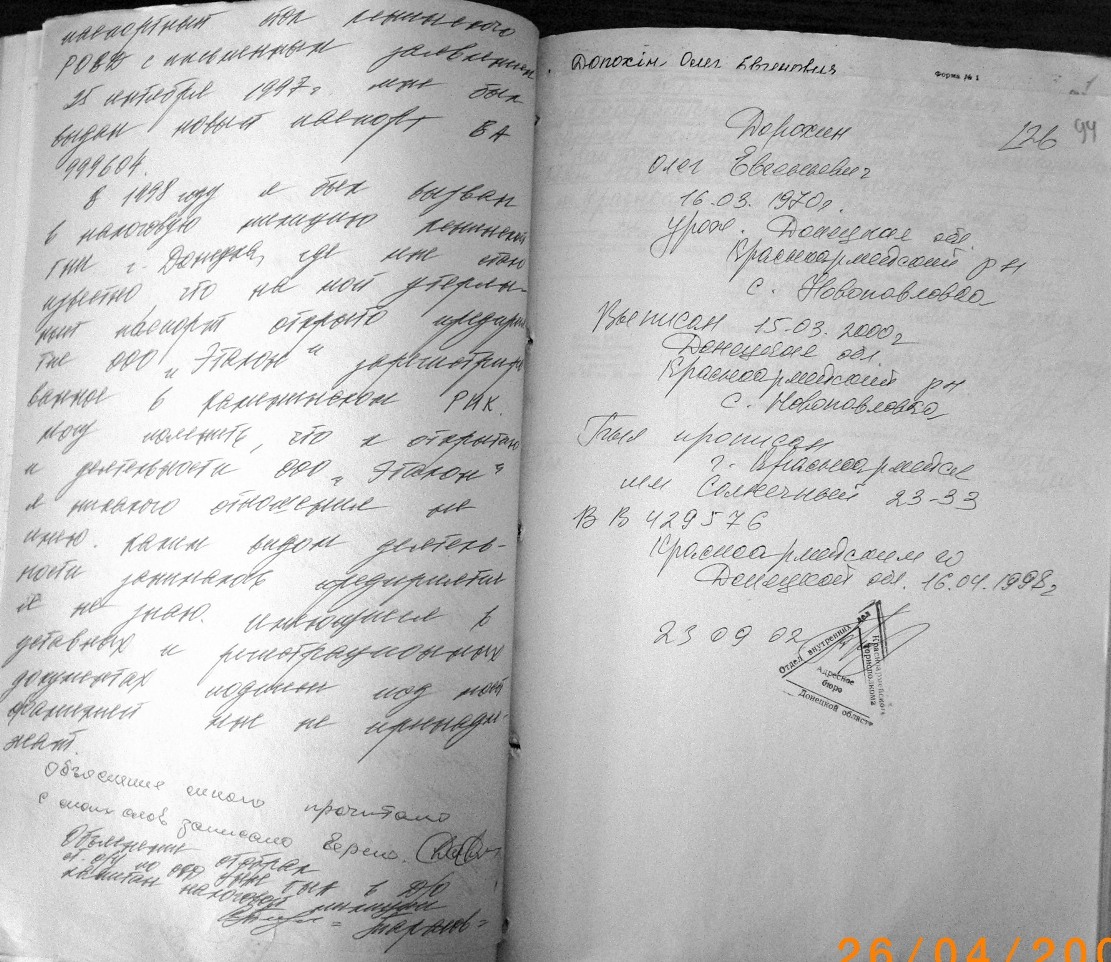 паспортный стол Ленинского
РОВД с письменным заявлением
25 сентября 1997г. мне был
выдан новый паспорт ВА
999604.
В 1998 году я был вызван
в налоговую милицию Ленинской
ГНИ г. Донецка, где мне стало
известно что на мой утерян-
ный паспорт открыто предприя
тие ООО "Эталон" зарегистриро
ванное в Калининском РИК.
могу пояснить, что к открытию
и деятельности ООО "Эталон"
я никакого отношения не
имею. Каким видом деятель-
ности занималось предприятие
я не знаю. Имеющиеся в
уставных и регистрационных
документах подписи под моей
фамилией мне не принадле-
жат.
Объяснение мною прочитано
с моих слов записано верно.
Объяснение отобрал
капитан налоговой милиции
Дорохін Олег Євгенович
Форма № 1
1
Дорохин
126 94
Олег Евгеньевич
16.03.1970г.
урож. Донецкая обл.
Красноармейский р-н
с. Новопавловка
Выписан 15.03.2000г
Донецкая обл
Красноармейский р-н
с. Новопавловка
Был прописан
г. Красноармейск
мн Солнечный 23-33
ВВ 429576
Красноармейским го
Донецкой обл. 16.04.1998г
23 09 02
Отдел внутренних дел
Красноармейского
горисполкома
Адресное
бюро
Донецкой области
26/04/200